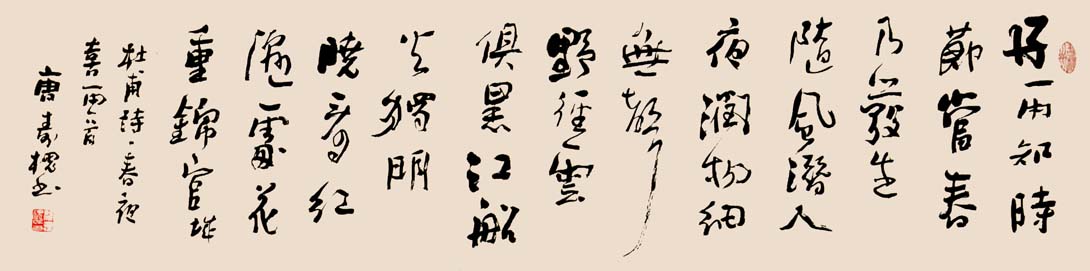 好雨知時
節當春
乃發生
隨風潛入
夜潤物細
無聲
野徑雲
俱黑江船
火獨明
曉看紅
濕處花
重錦官城
杜甫詩·春夜
喜雨
唐壽書